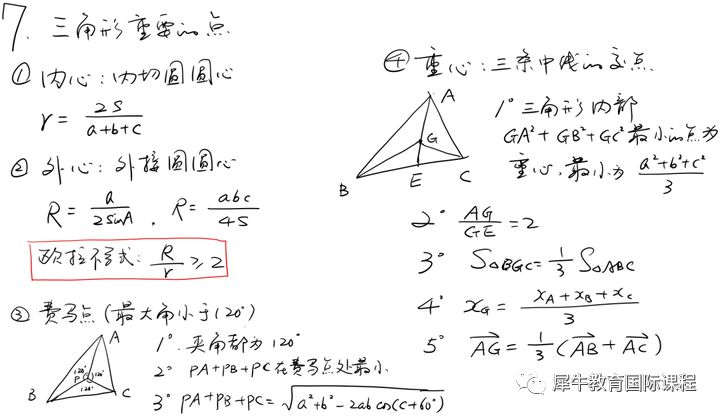 7. 三角形重要的点
① 内心：内切圆圆心
r = 2S/(a+b+c)
② 外心：外接圆圆心
R = a/(2sinA), R = abc/(4S)
欧拉不等式：R/r ≥ 2
③ 费马点（最大角小于120°）
A
B
C
P
120°
120°
120°
1° 夹角都为120°
2° PA+PB+PC在费马点处最小
3° PA+PB+PC = √(a²+b²-2ab cos(C+60°))
④ 重心：三条中线的交点
A
G
B
E
C
1° 三角形内部
GA²+GB²+GC²最小的点为
重心，最小为 (a²+b²+c²)/3
2° AG/GE = 2
3° S△BGC = 1/3 S△ABC
4° x_G = (x_A+x_B+x_C)/3
5° AG→ = 1/3(AB→ + AC→)
犀牛教育国际课程